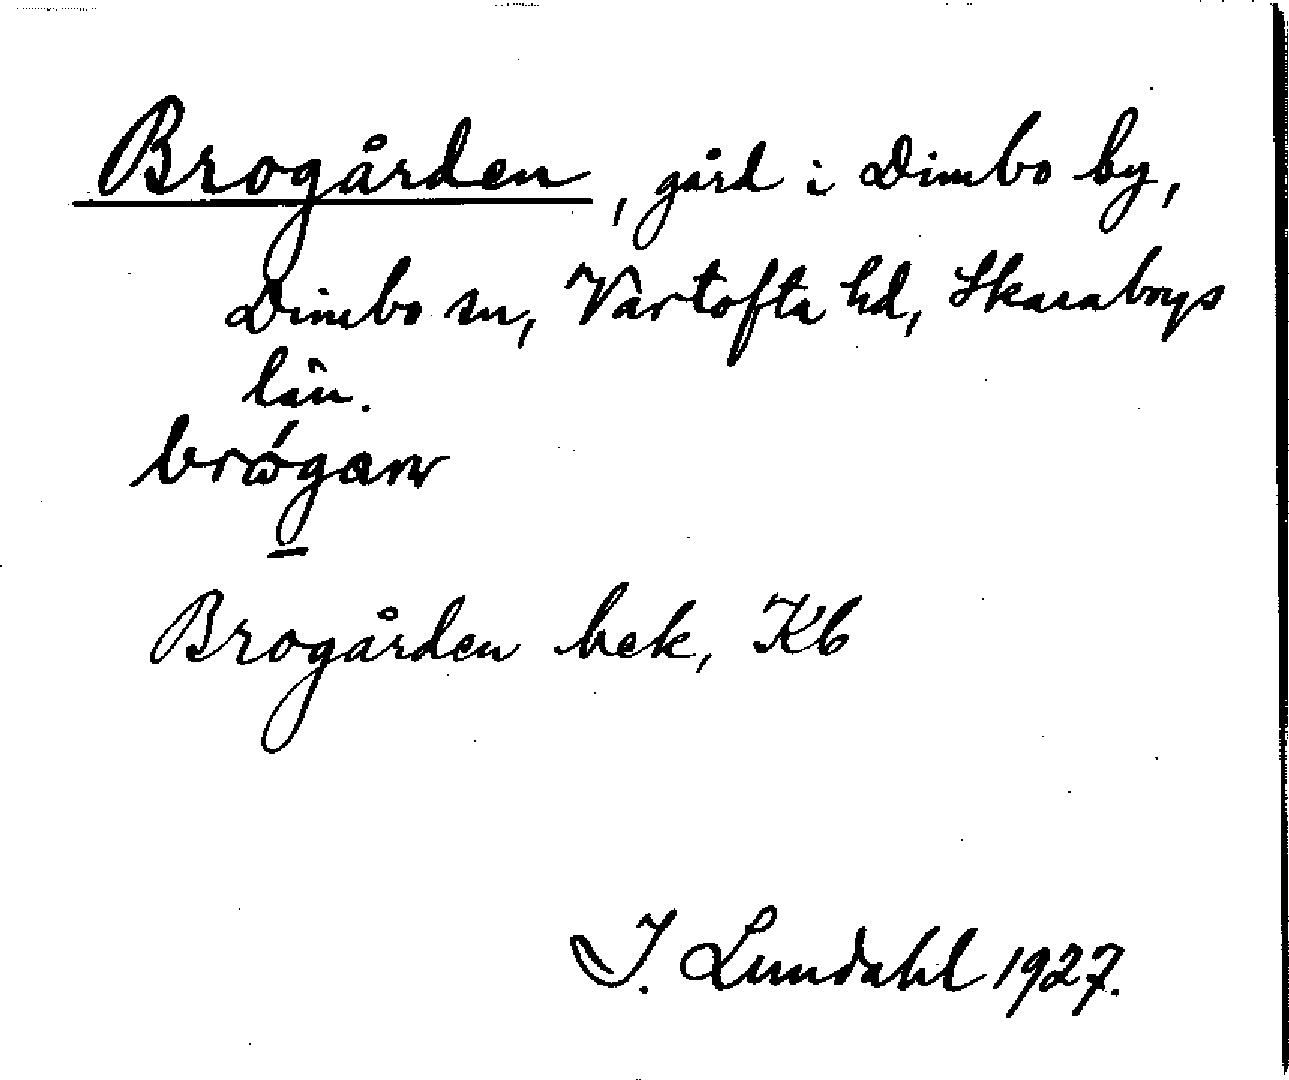 Brogården, gård i Dimbo by,
Dimbo sn, Vartofta hd, Skaraborgs
län.
Brogården bek, Kb
I. Lundahl 1927.